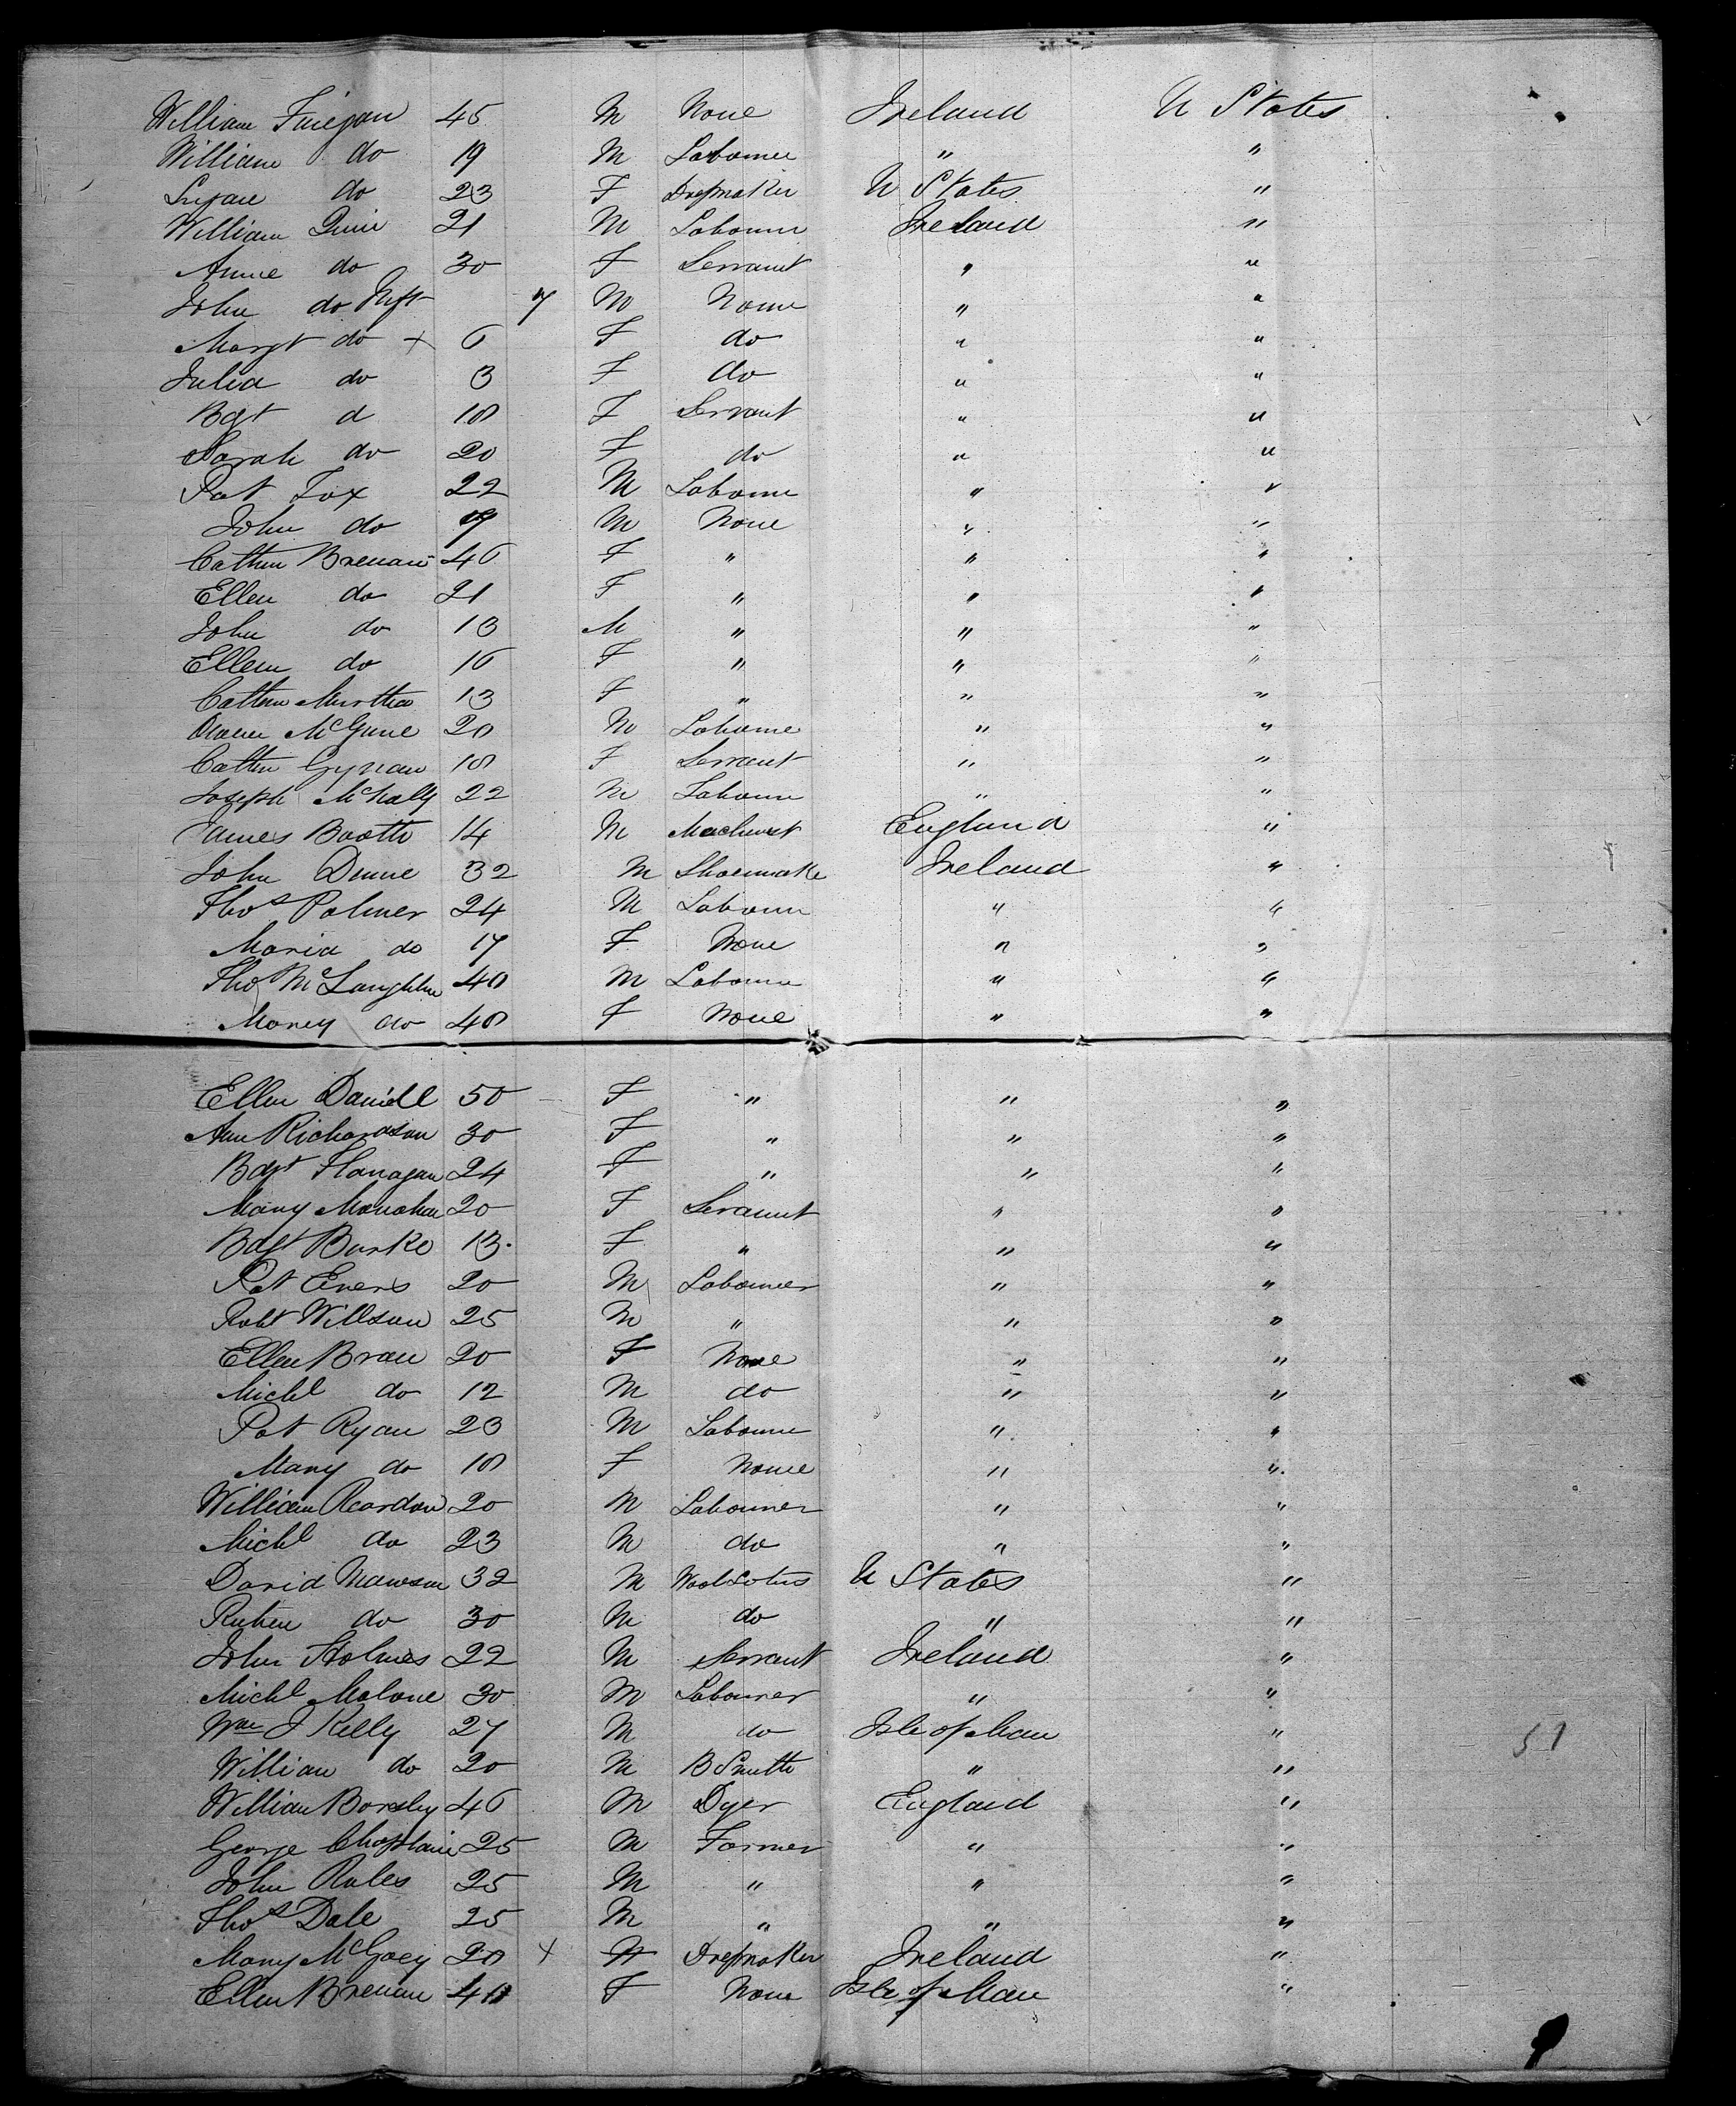 William Finegan 45 M None Ireland U States
William do 19 M Labourer " "
do 23 F Dressmaker U States "
William Quin 21 M Labourer Ireland "
Annie do 30 F Servant " "
John do Inft 7 M None " "
Margt do x 6 F do " "
Julia do 3 F do " "
Bgt d 18 F Servant " "
Sarah do 20 F do " "
Pat Fox 22 M Labourer " "
John do 19 M None " "
Cathn Brenan 46 F " " "
Ellen do 21 F " " "
John do 13 M " " "
Ellen do 16 F " " "
Cathn Murtha 13 F " " "
Owen 20 M Laborer " "
Cathn 18 F Servant " "
Joseph McNally 22 M Labourer " "
James Booth 14 M Machinist England "
John Dunne 32 M Shoemake Ireland "
Thos Palmer 24 M Labourer " "
Maria do 17 F None " "
Tho McLaughlin 40 M Labourer " "
Marey do 40 F None " "
Ellen Daniell 50 F " " "
Ann Richardson 30 F " " "
Bdgt Flanagan 24 F " " "
Mary Monahan 20 F Servant " "
Bdgt Burke 13 F " " "
Pat Evers 20 M Labourer " "
Robt Willson 25 M " " "
Ellen 20 F None " "
Michl do 12 M do " "
Pat Ryan 23 M Labourer " "
Mary do 18 F None " "
William Reardon 20 M Labourer " "
Michl do 23 M do " "
David Mawson 32 M U States "
Ruben do 30 M do " "
John Holmes 22 M Servant Ireland "
Michl Malone 30 M Labourer " "
Wm J Kelly 27 M do Isle of Man "
William do 20 M B Smith " "
William 46 M Dyer England "
George Chaplain 25 M Farmer " "
John Rules 25 M " " "
Thos Dale 25 M " " "
Mary McGoey 20 x Dressmaker Ireland "
Ellen Brenan 40 F None Isle of Man "
51